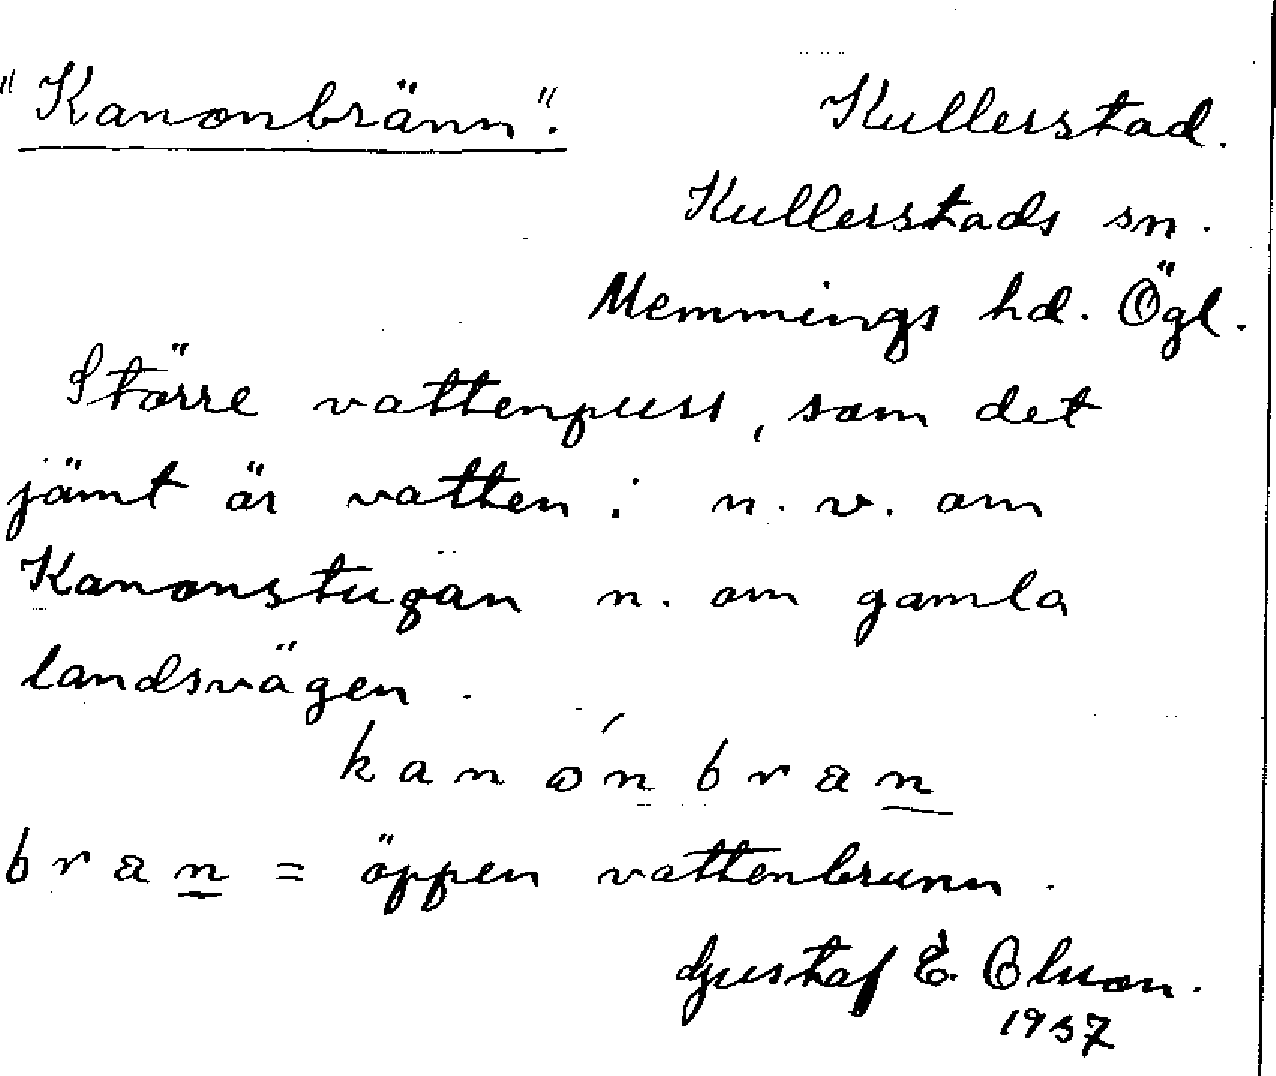 "Kanonbränn".
Kullerstad.
Kullerstads sn.
Memmings hd. Ögl.
Större vattenpuss, som det
jämt är vatten i n. v. om
Kanonstugan n. om gamla
landsvägen.
kanónbran
bran = öppen vattenbrunn.
Gustaf E. Olson.
1937